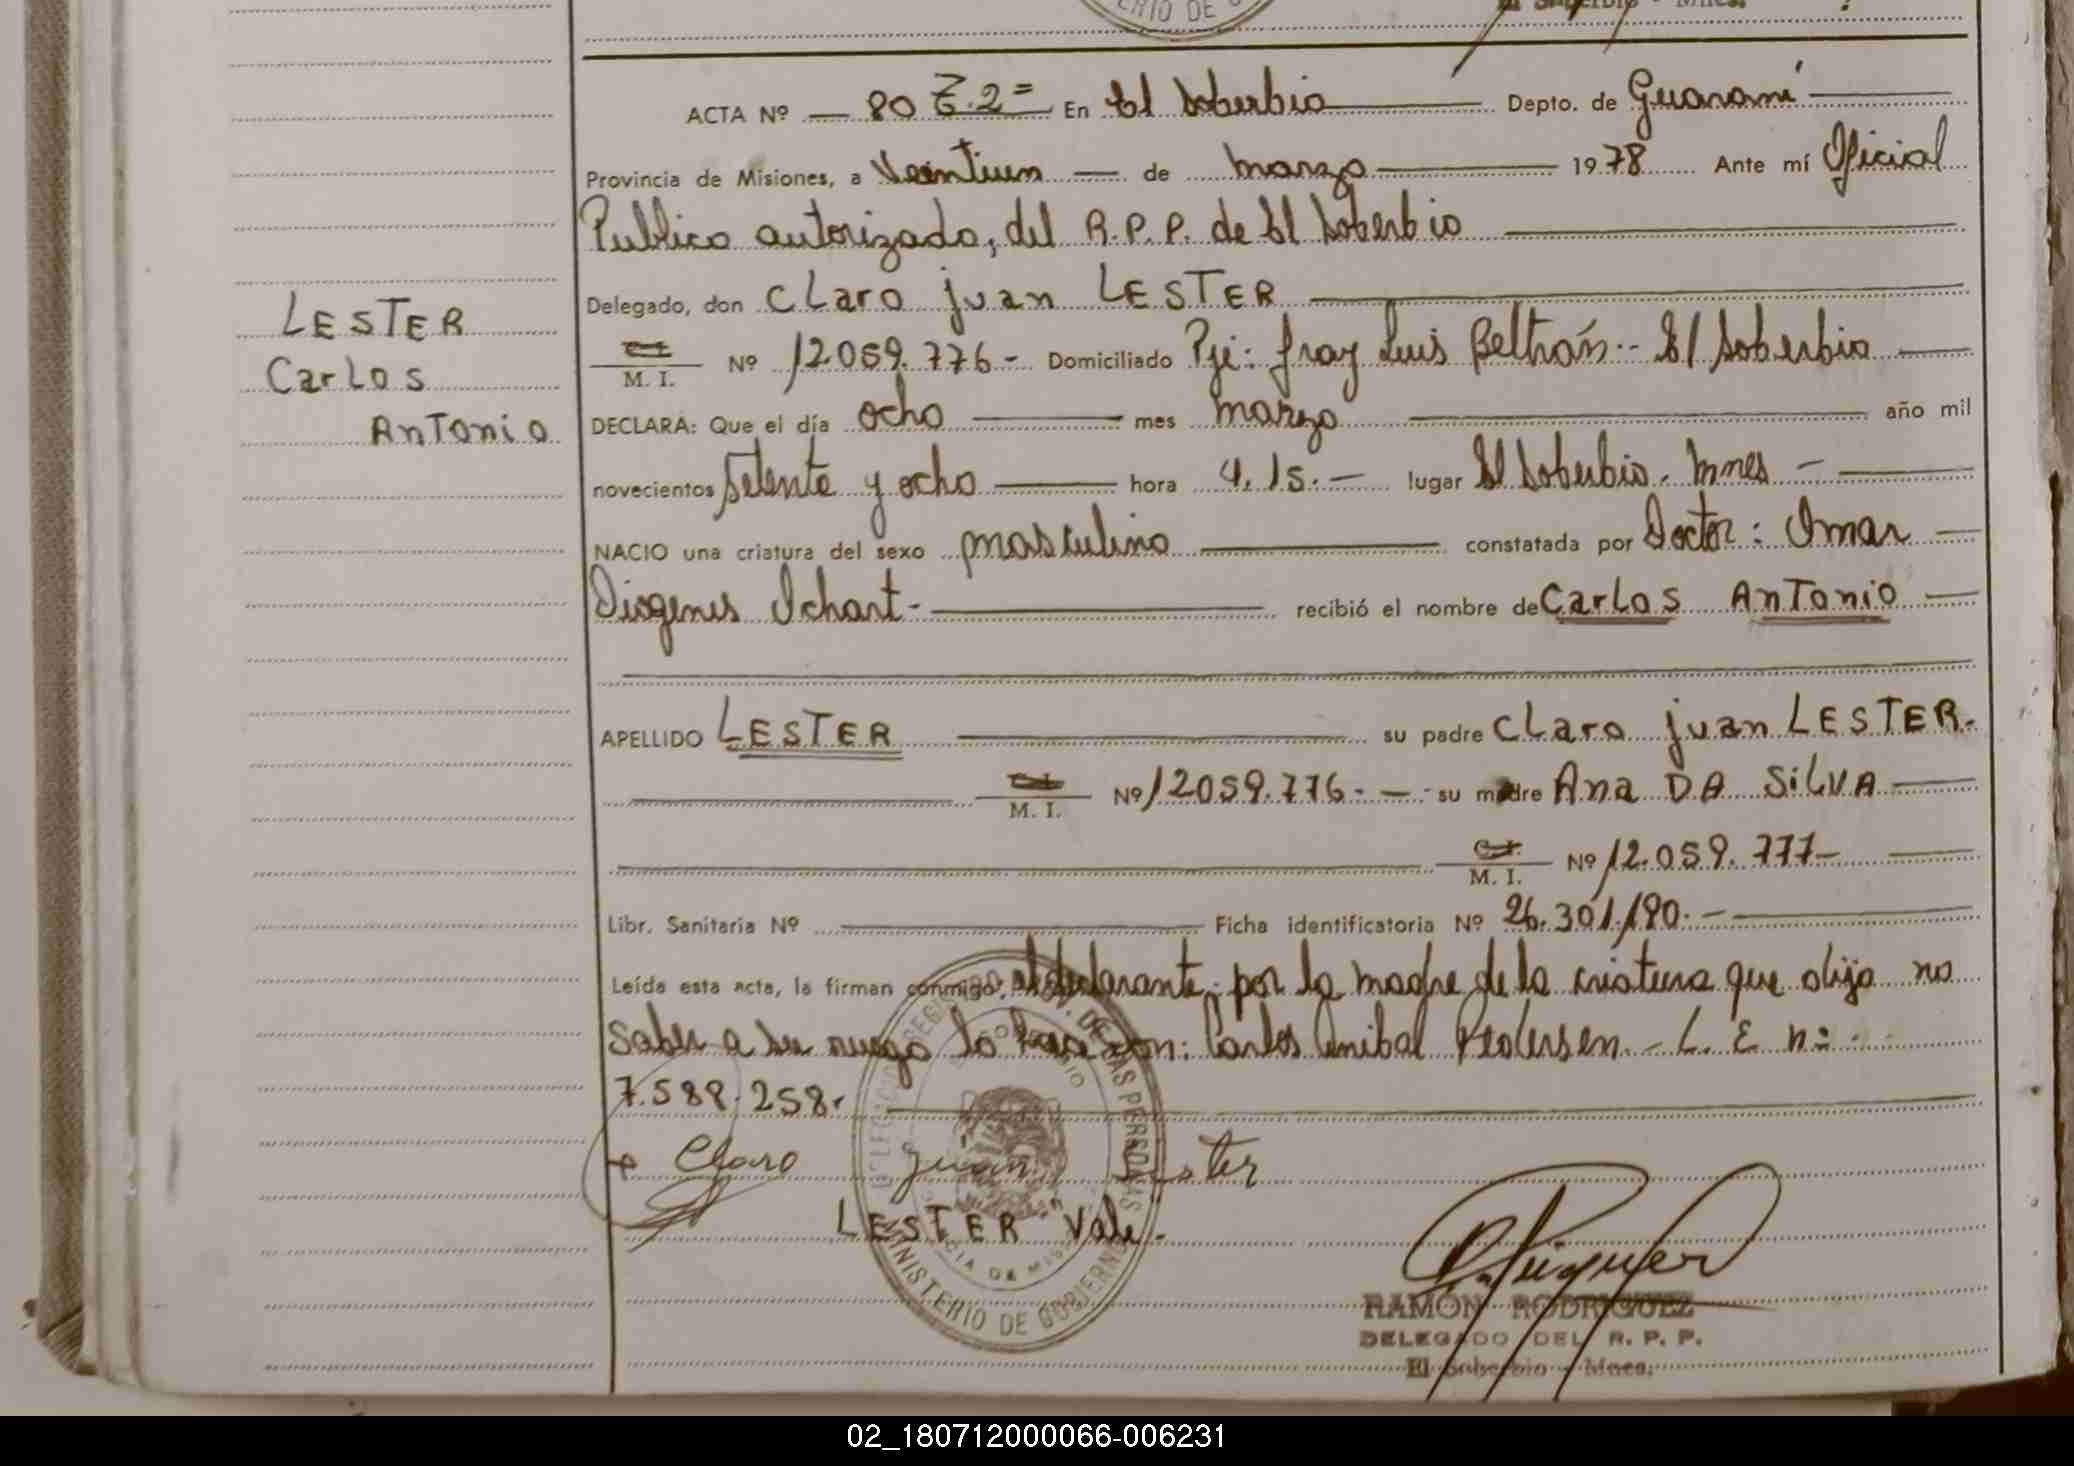 ERIO DE
El Soberbio - Mnes.
ACTA Nº 80 T. 2= En El Soberbio Depto. de Guaraní
Provincia de Misiones, a Veintiun de marzo 1978 Ante mí Oficial
Publico autorizado, del R.P.P. de El Soberbio
Delegado, don CLaro juan LESTER
LESTER
Carlos
Antonio
C.I. M. I. Nº 12.059.776- Domiciliado Pje: fray Luis Beltrán.- El Soberbio
DECLARA: Que el día ocho mes marzo año mil
novecientos setenta y ocho hora 4.15.- lugar El Soberbio. Mnes -
NACIO una criatura del sexo masculino constatada por Doctor: Omar
Diogenes Ichart- recibió el nombre de Carlos Antonio
APELLIDO LESTER su padre CLaro juan LESTER.
C.I. M. I. Nº 12059.776.- su madre Ana DA SiLVA
C.I. M. I. Nº 12.059.777-
Libr. Sanitaria Nº Ficha identificatoria Nº 26.301.190.-
Leída esta acta, la firman conmigo, el declarante, por la madre de la criatura que dijo no
saber a su ruego lo hace don: Carlos Anibal Pedersen.- L. E n=
7.588.258.
Claro Juan Lester
LESTER Vale.
MINISTERIO DE GOBIERNO
RAMÓN RODRIGUEZ
DELEGADO DEL R. P. P.
El Soberbio - Mnes.
02_180712000066-006231